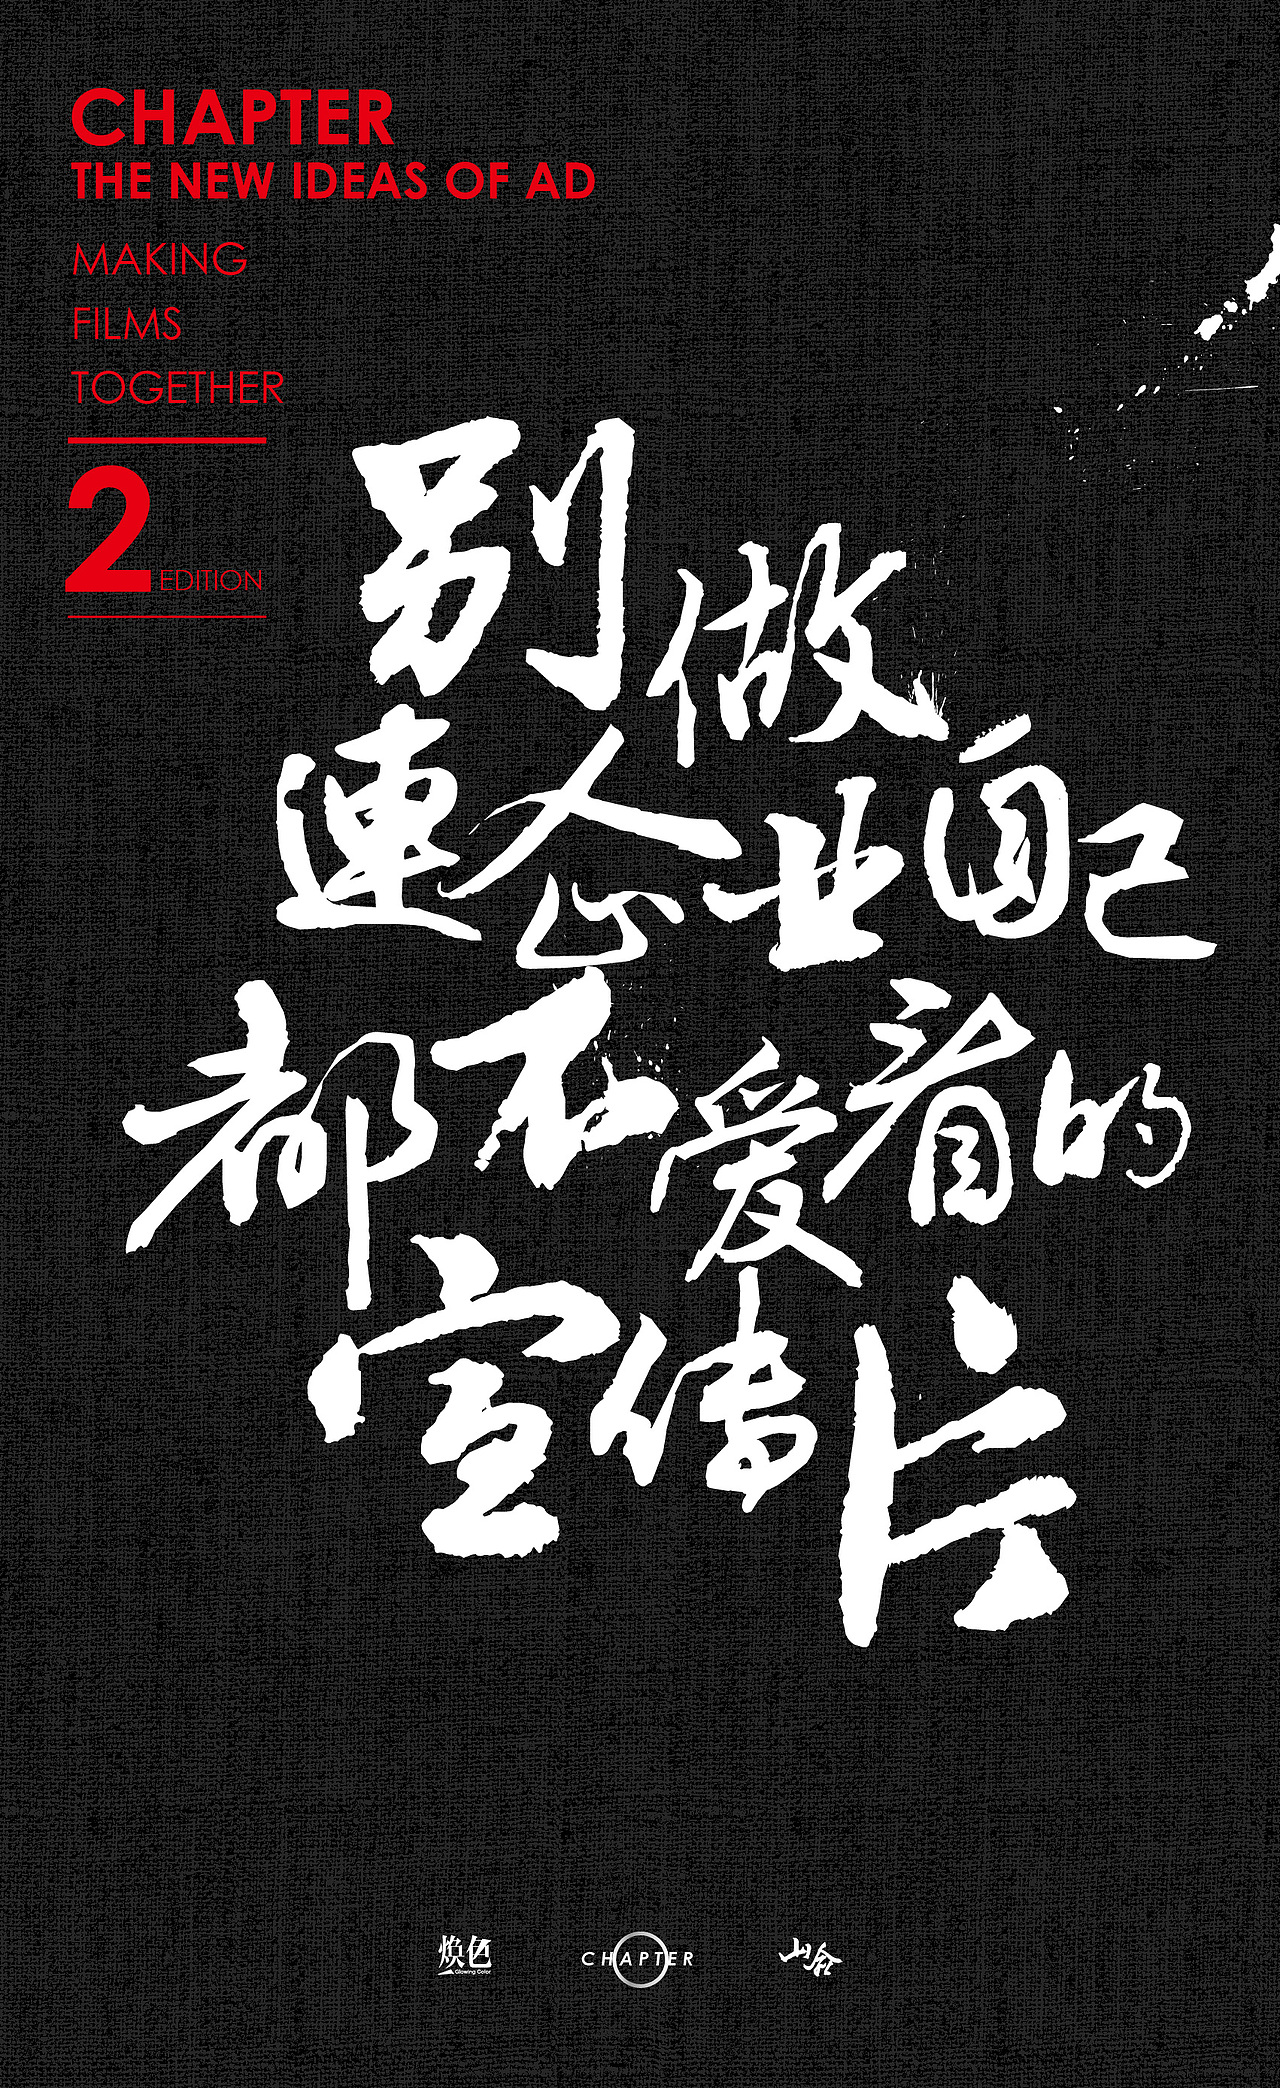 CHAPTER
THE NEW IDEAS OF AD
MAKING
FILMS
TOGETHER
2 EDITION
别做
連企业自己
都不爱看的
宣传片
焕色
Glowing Color
CHAPTER